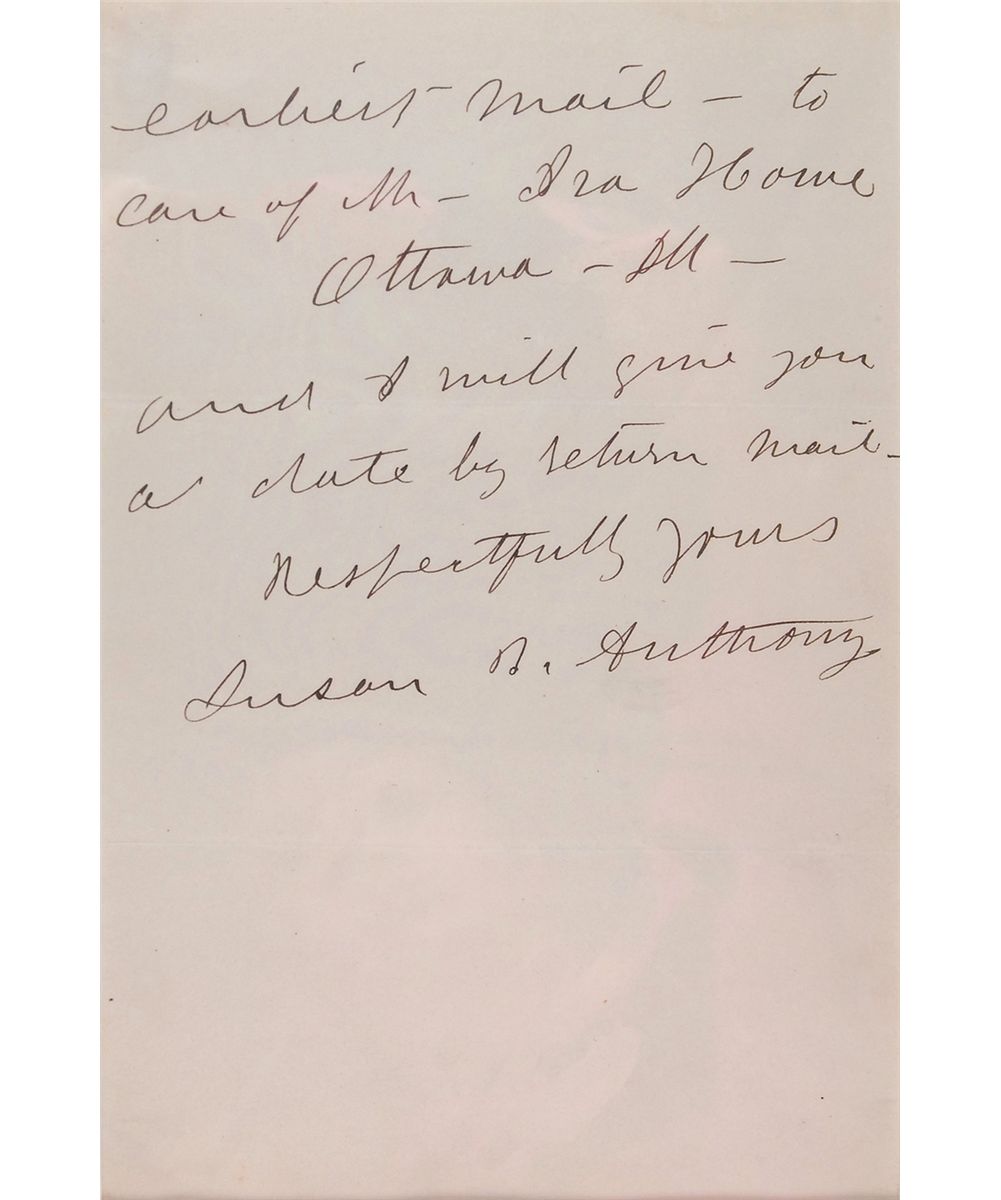 earliest mail - to
care of Mr - Ira Howe
Ottawa - Ill -
and I will give you
a date by return mail -
Respectfully yours
Susan B. Anthony